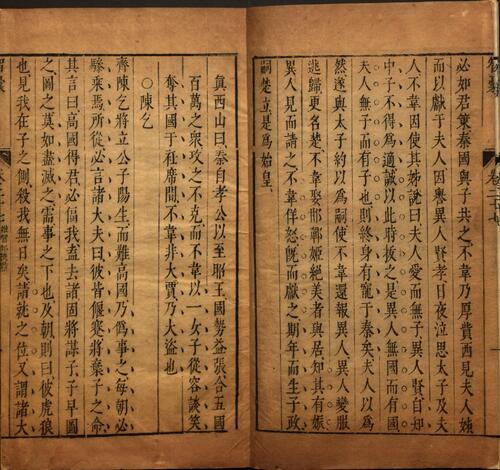 必如君策秦國與子共之不韋乃厚貲西見夫人姊
而以獻于夫人因譽異人賢孝日夜泣思太子及夫
人不韋因使其姊說曰夫人愛而無子異人賢自知
中子不得爲適誠以此時拔之是異人無國而有國
夫人無子而有子也則終身有寵于秦矣夫人以爲
然遂與太子約以爲嗣使不韋還報異人異人變服
逃歸更名楚不韋娶邯鄲姬絕美者與居知其有娠
異人見而請之不韋佯怒既而獻之期年而生子政
嗣楚立是爲始皇
眞西山曰秦自孝公以至昭王國勢益張合五國
百萬之衆攻之不克而不韋以一女子從容談笑
奪其國于衽席間不韋非大賈乃大盜也
○陳乞
齊陳乞將立公子陽生而難高國乃僞事之每朝必
驂乘焉所從必言諸大夫曰彼皆偃蹇將棄子之命
其言曰高國得君必偪我盍去諸固將謀子子早圖
之圖之莫如盡滅之需事之下也及朝則曰彼虎狼
也見我在子之側殺我無日矣請就之位又謂諸大
智囊